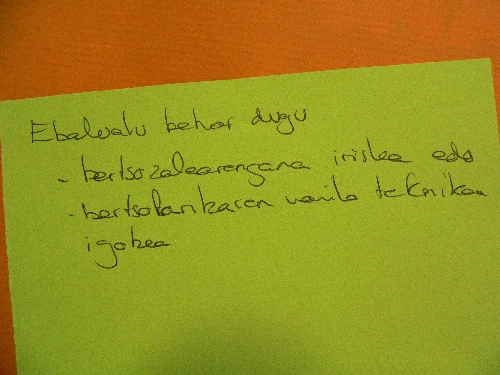 Ebaluatu behar dugu
- bertsozalearengana iristea edo
- bertsolariaren maila teknikoa
igotzea